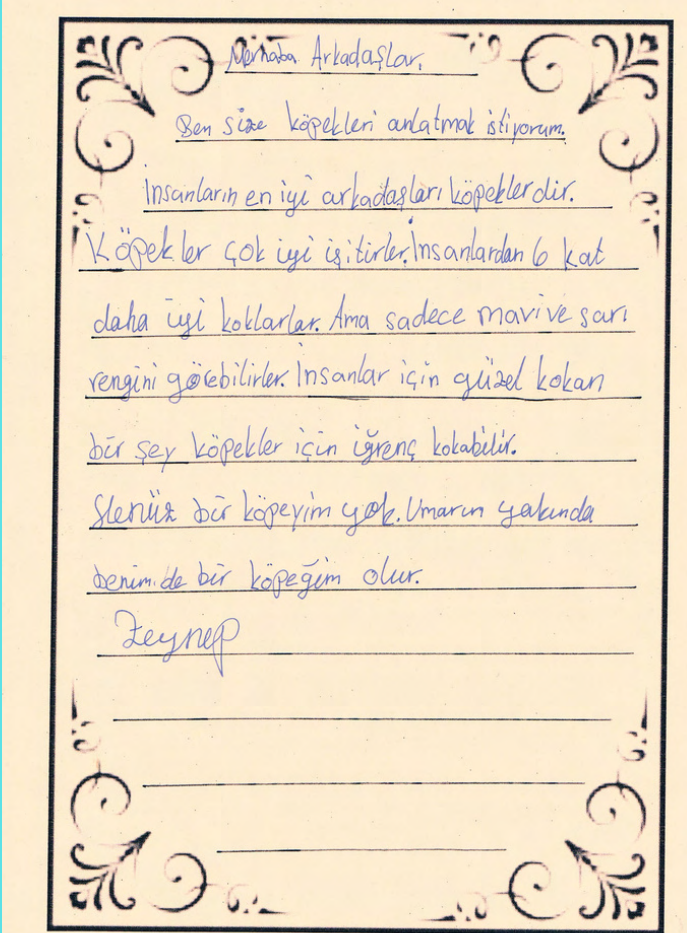 Merhaba Arkadaşlar.
Ben size köpekleri anlatmak istiyorum.
İnsanların en iyi arkadaşları köpeklerdir.
Köpekler çok iyi işitirler. İnsanlardan 6 kat
daha iyi koklarlar. Ama sadece mavi ve sarı
rengini görebilirler. İnsanlar için güzel kokan
bir şey köpekler için iğrenç kokabilir.
Henüz bir köpeyim yok. Umarım yakında
benim de bir köpeğim olur.
Zeynep